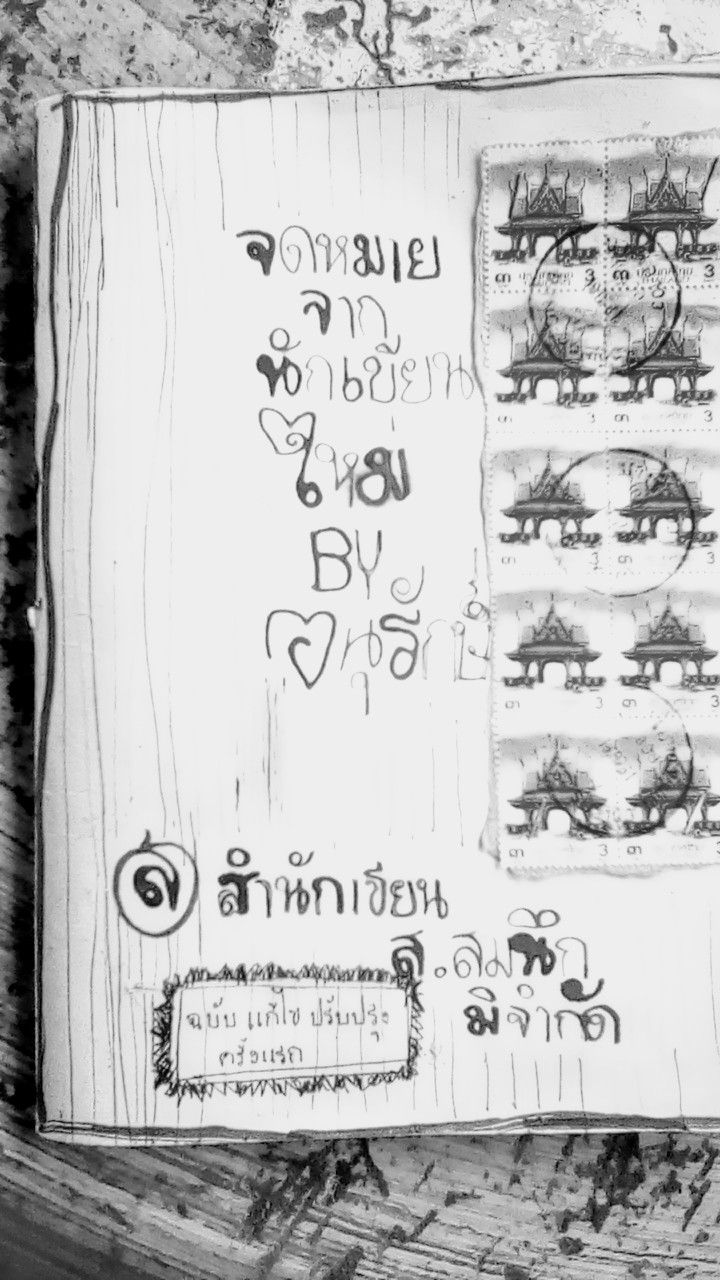 จดหมาย
จาก
นักเขียน
ใหม่
BY
อนุรักษ์
ส สำนักเขียน
ส.สมนึก
มิจำกัด
ฉบับ แก้ไข ปรับปรุง
ครั้งแรก
๓ 3 ๓ 3
๓ 3 ๓ 3
๓ 3 ๓ 3
๓ 3 ๓ 3
๓ 3 ๓ 3